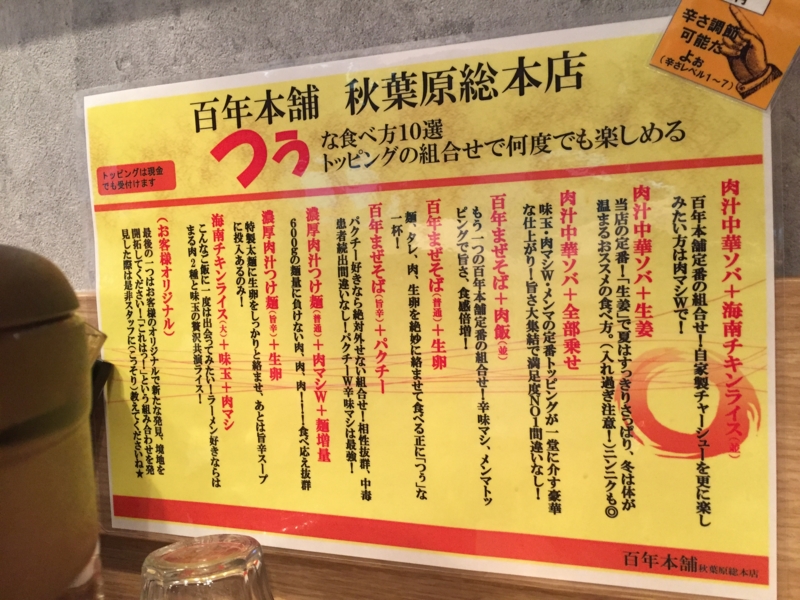 辛さ調節
可能だ
よぉ
(辛さレベル1〜7)
百年本舗 秋葉原総本店
つぅ
な食べ方10選
トッピングの組合せで何度でも楽しめる
トッピングは現金
でも受付けます
肉汁中華ソバ＋海南チキンライス(並)
百年本舗定番の組合せ！自家製チャーシューを更に楽し
みたい方は肉マシWで！
肉汁中華ソバ＋生姜
当店の定番！「生姜」で夏はすっきりさっぱり、冬は体が
温まるおススメの食べ方。(入れ過ぎ注意！)ニンニクも◎
肉汁中華ソバ＋全部乗せ
味玉・肉マシW・メンマの定番トッピングが一堂に介す豪華
な仕上がり！旨さ大集結で満足度NO1間違いなし！
百年まぜそば＋肉飯(並)
もう一つの百年本舗定番の組合せ！辛味マシ、メンマトッ
ピングで旨さ、食感倍増！
百年まぜそば(普通)＋生卵
麺、タレ、肉、生卵を絶妙に絡ませて食べる正に「つぅ」な
一杯！
百年まぜそば(旨辛)＋パクチー
パクチー好きなら絶対外せない組合せ！相性抜群、中毒
患者続出間違いなし！パクチーW辛味マシは最強！
濃厚肉汁つけ麺(普通)＋肉マシW＋麺増量
600gの麺量に負けない肉、肉、肉！！！食べ応え抜群
濃厚肉汁つけ麺(旨辛)＋生卵
特製太麺に生卵をしっかりと絡ませ、あとは旨辛スープ
に投入あるのみ！
海南チキンライス(大)＋味玉＋肉マシ
こんなご飯に一度は出会ってみたい！ラーメン好きならは
まる肉2種と味玉の贅沢共演ライス！
(お客様オリジナル)
最後の一つはお客様のオリジナルで新たな発見、境地を
開拓してください！「これはつぅ！」という組み合わせを発
見した際は是非スタッフに(こっそり)教えてくださいね★
百年本舗 秋葉原総本店